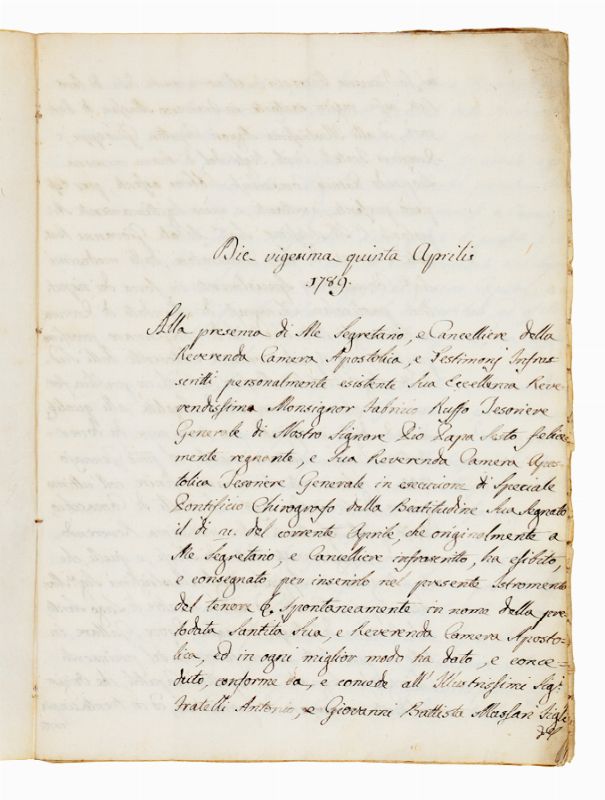 Die vigesima quinta Aprilis
1789.
Alla presenza di Me Segretario, e Cancelliere della
Reverenda Camera Apostolica, e Testimonj Infras
scritti personalmente esistente Sua Eccellenza Reve-
rendissima Monsignor Fabrizio Ruffo Tesoriere
Generale di Nostro Signore Pio Papa Sesto felice-
mente regnante, e Sua Reverenda Camera Apos-
tolica Tesoriere Generale in esecuzione di Speciale
Pontificio Chirografo dalla Beatitudine Sua Segnato
il di 21. del corrente Aprile, che originalmente a
Me Segretario, e Cancelliere infrascritto, ha esibito,
e consegnato per inserirlo nel presente Istromento
del tenore &. Spontaneamente in nome della pre-
lodata Santità Sua, e Reverenda Camera Aposto-
lica, ed in ogni miglior modo ha dato, e conce-
duto, conforme da, e concede all' Illustrissimi Sigri
Fratelli Antonio, e Giovanni Battista Massari Figli